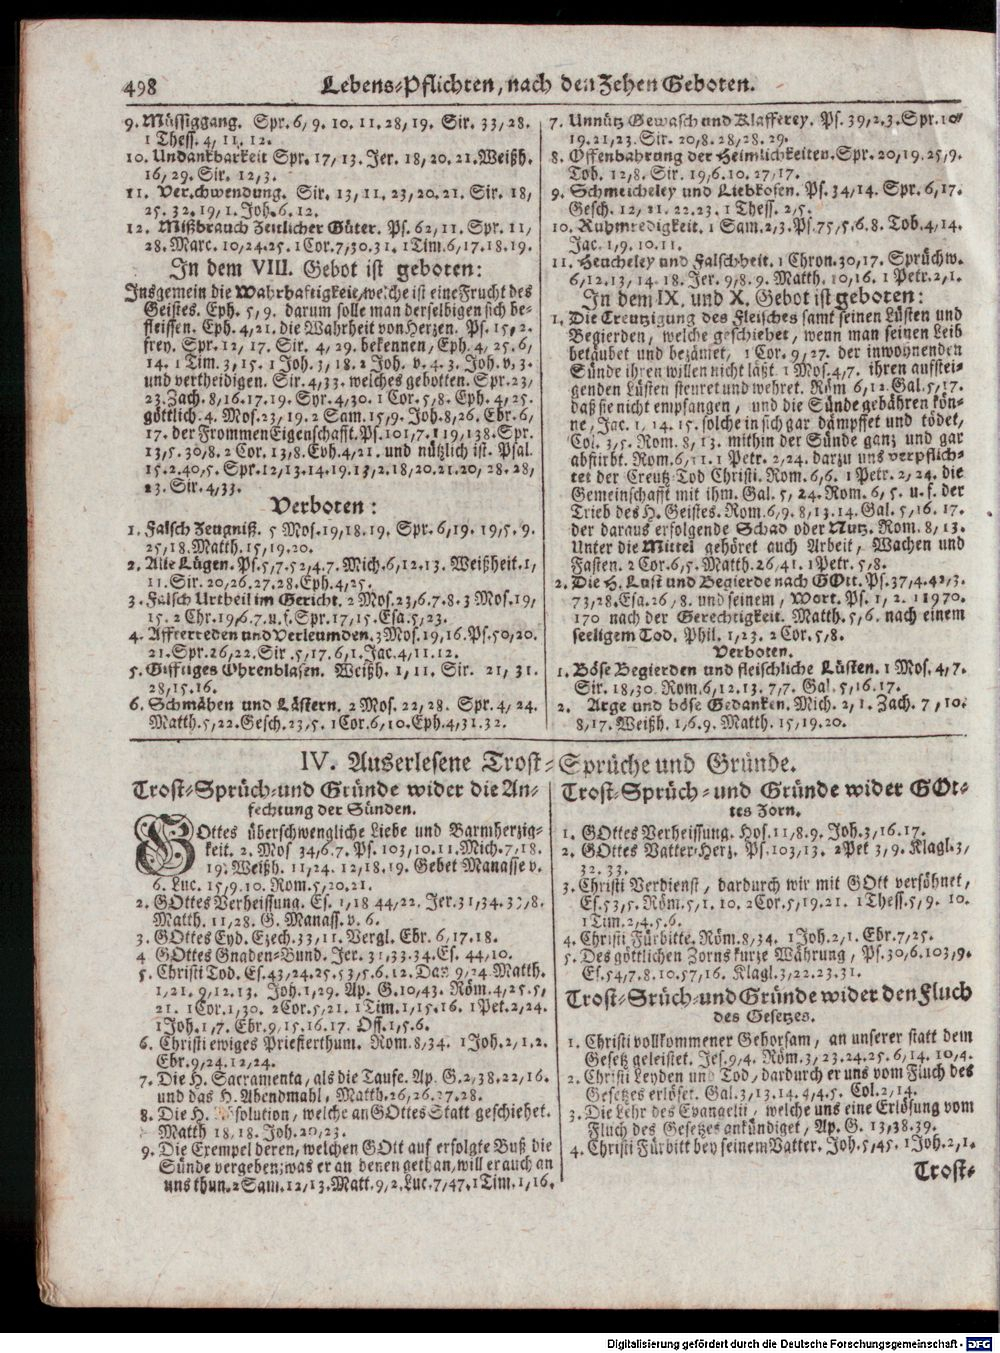 498 Lebens-Pflichten, nach den Zehen Geboten.
9. Müssiggang. Spr. 6, 9. 10. 11. 28, 19. Sir. 33, 28.
1 Thess. 4, 11. 12.
10. Undankbarkeit Spr. 17, 13. Jer. 18, 20. 21. Weißh.
16, 29. Sir. 12, 3.
11. Verschwendung. Sir. 13, 11. 23, 20. 21. Sir. 18,
25. 32. 19, 1. Joh. 6. 12.
12. Mißbrauch Zeitlicher Güter. Ps. 62, 11. Spr. 11,
28. Marc. 10, 24. 25. 1 Cor. 7, 30. 31. 1 Tim. 6, 17. 18. 19.
In dem VIII. Gebot ist geboten:
Insgemein die Wahrhaftigkeit, welche ist eine Frucht des
Geistes. Eph. 5, 9. darum solle man derselbigen sich be-
fleissen. Eph. 4, 21. die Wahrheit von Herzen. Ps. 15, 2.
frey. Spr. 12, 17. Sir. 4, 29. bekennen, Eph. 4, 25. 6,
14. 1 Tim. 3, 15. 1 Joh. 3, 18. 2 Joh. v. 4. 3. Joh. v. 3.
und vertheidigen. Sir. 4, 33. welches gebotten. Spr. 23,
23. Zach. 8, 16. 17. 19. Syr. 4, 30. 1 Cor. 5, 8. Eph. 4, 25.
göttlich. 4. Mos. 23, 19. 2 Sam. 15, 9. Joh. 8, 26. Ebr. 6,
17. der Frommen Eigenschafft. Ps. 101, 7. 119, 138. Spr.
13, 5. 30, 8. 2 Cor. 13, 8. Eph. 4, 21. und nützlich ist. Psal.
15. 2. 40, 5. Spr. 12, 13. 14. 19. 13, 2. 18, 20. 21. 20, 28. 28,
23. Sir. 4, 33.
Verboten:
1. Falsch Zeugniß. 5 Mos. 19, 18. 19. Spr. 6, 19. 19, 5. 9.
25, 18. Matth. 15, 19. 20.
2. Alle Lügen. Ps. 5, 7. 52, 4. 7. Mich. 6, 12. 13. Weißheit. 1,
11. Sir. 20, 26. 27. 28. Eph. 4, 25.
3. Falsch Urtheil im Gericht. 2 Mos. 23, 6. 7. 8. 3 Mos. 19,
15. 2 Chr. 19, 6. 7. u. f. Spr. 17, 15. Esa. 5, 23.
4. Affterreden und Verleumden. 3 Mos. 19, 16. Ps. 50, 20.
21. Spr. 26, 22. Sir. 5, 17. 6, 1. Jac. 4, 11. 12.
5. Gifftiges Ohrenblasen. Weißh. 1, 11. Sir. 21, 31.
28, 15. 16.
6. Schmähen und Lästern. 2 Mos. 22, 28. Spr. 4, 24.
Matth. 5, 22. Gesch. 23, 5. 1 Cor. 6, 10. Eph. 4, 31. 32.
7. Unnütz Gewäsch und Klafferey. Ps. 39, 2. 3. Spr. 10,
19. 21, 23. Sir. 20, 8. 28, 28. 29.
8. Offenbahrung der Heimlichkeiten. Spr. 20, 19. 25, 9.
Tob. 12, 8. Sir. 19, 6. 10. 27, 17.
9. Schmeicheley und Liebkosen. Ps. 34, 14. Spr. 6, 17.
Gesch. 12, 21. 22. 23. 1 Thess. 2, 5.
10. Ruhmredigkeit. 1 Sam. 2, 3. Ps. 75, 5. 6. 8. Tob. 4, 14.
Jac. 1, 9. 10. 11.
11. Heucheley und Falschheit. 1 Chron. 30, 17. Sprüchw.
6, 12. 13, 14. 18. Jer. 9, 8. 9. Matth. 10, 16. 1 Petr. 2, 1.
In dem IX. und X. Gebot ist geboten:
1. Die Creutzigung des Fleisches samt seinen Lüsten und
Begierden, welche geschiehet, wenn man seinen Leib
betäubet und bezämet, 1 Cor. 9, 27. der inwohnenden
Sünde ihren willen nicht läßt. 1 Mos. 4, 7. ihren auffstei-
genden Lüsten steuret und wehret. Röm. 6, 12. Gal. 5, 17.
daß sie nicht empfangen, und die Sünde gebähren kön-
ne, Jac. 1, 14. 15. solche in sich gar dämpffet und tödet,
Col. 3, 5. Rom. 8, 13. mithin der Sünde ganz und gar
abstirbt. Rom. 6, 11. 1 Petr. 2, 24. darzu uns verpflich-
tet der Creutz-Tod Christi. Rom. 6, 6. 1 Petr. 2, 24. die
Gemeinschafft mit ihm. Gal. 5, 24. Rom. 6, 5. u. f. der
Trieb des H. Geistes. Rom. 6, 9. 8, 13. 14. Gal. 5, 16. 17.
der daraus erfolgende Schad oder Nutz. Rom. 8, 13.
Unter die Mittel gehöret auch Arbeit, Wachen und
Fasten. 2 Cor. 6, 5. Matth. 26, 41. 1 Petr. 5, 8.
2. Die H. Lust und Begierde nach GOtt. Ps. 37, 4. 42, 3.
73, 28. Esa. 26, 8. und seinem, Wort. Ps. 1, 2. 11970.
170 nach der Gerechtigkeit. Matth. 5, 6. nach einem
seeligem Tod. Phil. 1, 23. 2 Cor. 5, 8.
Verboten.
1. Böse Begierden und fleischliche Lüsten. 1 Mos. 4, 7.
Sir. 18, 30. Rom. 6, 12. 13. 7, 7. Gal. 5, 16. 17.
2. Arge und böse Gedanken. Mich. 2, 1. Zach. 7, 10.
8, 17. Weißh. 1, 6. 9. Matth. 15, 19. 20.
IV. Auserlesene Trost-Sprüche und Gründe.
Trost-Sprüch-und Gründe wider die An-
fechtung der Sünden.
GOttes überschwengliche Liebe und Barmherzig-
keit. 2. Mos 34, 6. 7. Ps. 103, 10. 11. Mich. 7, 18.
19. Weißh. 11, 24. 12, 18. 19. Gebet Manasse v.
6. Luc. 15, 9. 10. Rom. 5, 20. 21.
2. GOttes Verheissung. Es. 1, 18 44, 22. Jer. 31, 34. 3?, 8.
Matth. 11, 28. G. Manass. v. 6.
3. GOttes Eyd. Ezech. 33, 11. Vergl. Ebr. 6, 17. 18.
4 GOttes Gnaden-Bund. Jer. 31, 33. 34. Es. 44, 10.
5. Christi Tod. Es. 43, 24. 25. 53, 5. 6. 12. Dan 9, 24. Matth.
1, 21. 9, 12. 13. Joh. 1, 29. Ap. G. 10, 43. Röm. 4, 25. 5,
21. 1 Cor. 1, 30. 2 Cor. 5, 21. 1 Tim. 1, 15. 16. 1 Pet. 2, 24.
1 Joh. 1, 7. Ebr. 9, 15. 16. 17. Off. 1, 5. 6.
6. Christi ewiges Priesterthum. Rom. 8, 34. 1 Joh. 2, 1. 2.
Ebr. 9, 24. 12, 24.
7. Die H. Sacramenta, als die Taufe. Ap. G. 2, 38. 22, 16.
und das H. Abendmahl, Matth. 26, 26. 27. 28.
8. Die H. Absolution, welche an GOttes Statt geschiehet.
Matth 18, 18. Joh. 20, 23.
9. Die Exempel deren, welchen GOtt auf erfolgte Buß die
Sünde vergeben; was er an denen gethan, will er auch an
uns thun. 2 Sam. 12, 13. Matt. 9, 2. Luc. 7, 47. 1 Tim. 1, 16.
Trost-Sprüch-und Gründe wider GOt-
tes Zorn.
1. GOttes Verheissung. Hos. 11, 8. 9. Joh. 3, 16. 17.
2. GOttes Vatter-Herz. Ps. 103, 13. 2 Pet 3, 9. Klagl. 3,
32. 33.
3. Christi Verdienst, dardurch wir mit GOtt versöhnet,
Es. 53, 5. Röm. 5, 1. 10. 2 Cor. 5, 19. 21. 1 Thess. 5, 9. 10.
1 Tim. 2, 4. 5. 6.
4. Christi Fürbitte. Röm. 8, 34. 1 Joh. 2, 1. Ebr. 7, 25.
5. Des göttlichen Zorns kurze Währung, Ps. 30, 6. 103, 9.
Es. 54, 7. 8. 10. 57, 16. Klagl. 3, 22. 23. 31.
Trost-Srüch-und Gründe wider den Fluch
des Gesetzes.
1. Christi vollkommener Gehorsam, an unserer statt dem
Gesetz geleistet. Jes. 9, 4. Röm. 3, 23. 24. 25. 6, 14. 10, 4.
2. Christi Leyden und Tod, dardurch er uns vom Fluch des
Gesetzes erlöset. Gal. 3, 13. 14. 4, 4. 5. Col. 2, 14.
3. Die Lehr des Evangelii, welche uns eine Erlösung vom
Fluch des Gesetzes ankündiget, Ap. G. 13, 38. 39.
4. Christi Fürbitt bey seinem Vatter. Joh. 5, 45. 1 Joh. 2, 1.
Trost-
Digitalisierung gefördert durch die Deutsche Forschungsgemeinschaft - DFG